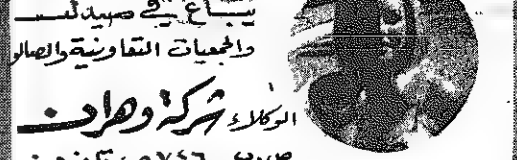 يباع في صيدلـــ
والجمعيات التعاونية والصالو
الوكلاء شركة وهران
ص ب ٧٤٦